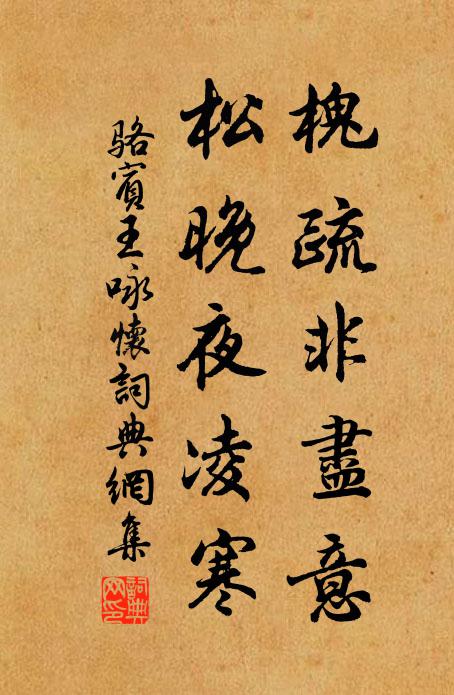 槐疏非盡意
松晚夜凌寒
駱賓王詠懷詞典網集
詞典網印